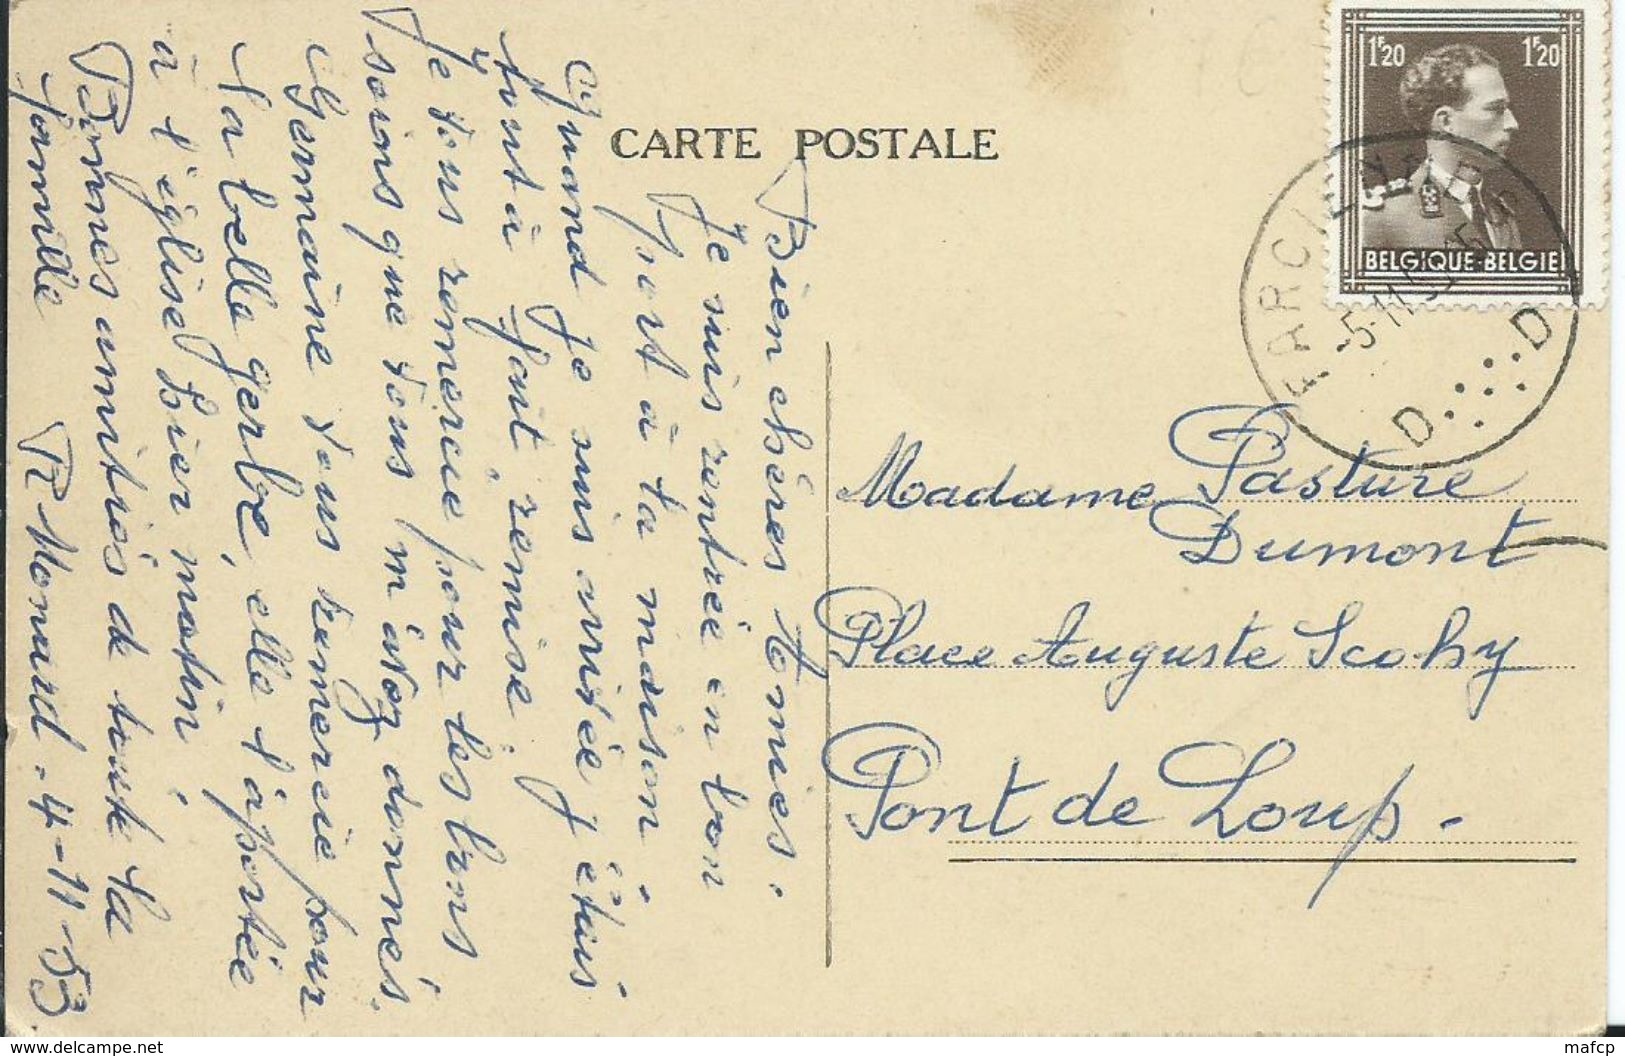 CARTE POSTALE
1F20 1F20
BELGIQUE-BELGIE
FARCIENNES
-5-11
D D
Bien chères Amies.
Je suis rentrée en bon
port à la maison.
Quand je suis arrivée j'étais
tout à fait remise.
Je vous remercie pour les bons
soins que vous m'avez donnés.
Germaine vous remercie pour
la belle gerbe, elle l'a portée
à l'église hier matin.
Bonnes amitiés de toute la
famille R Monard. 4-11-53.
Madame Pasture
Dumont
Place Auguste Scohy
Pont de Loup.
https://www.delcampe.net
mafcp